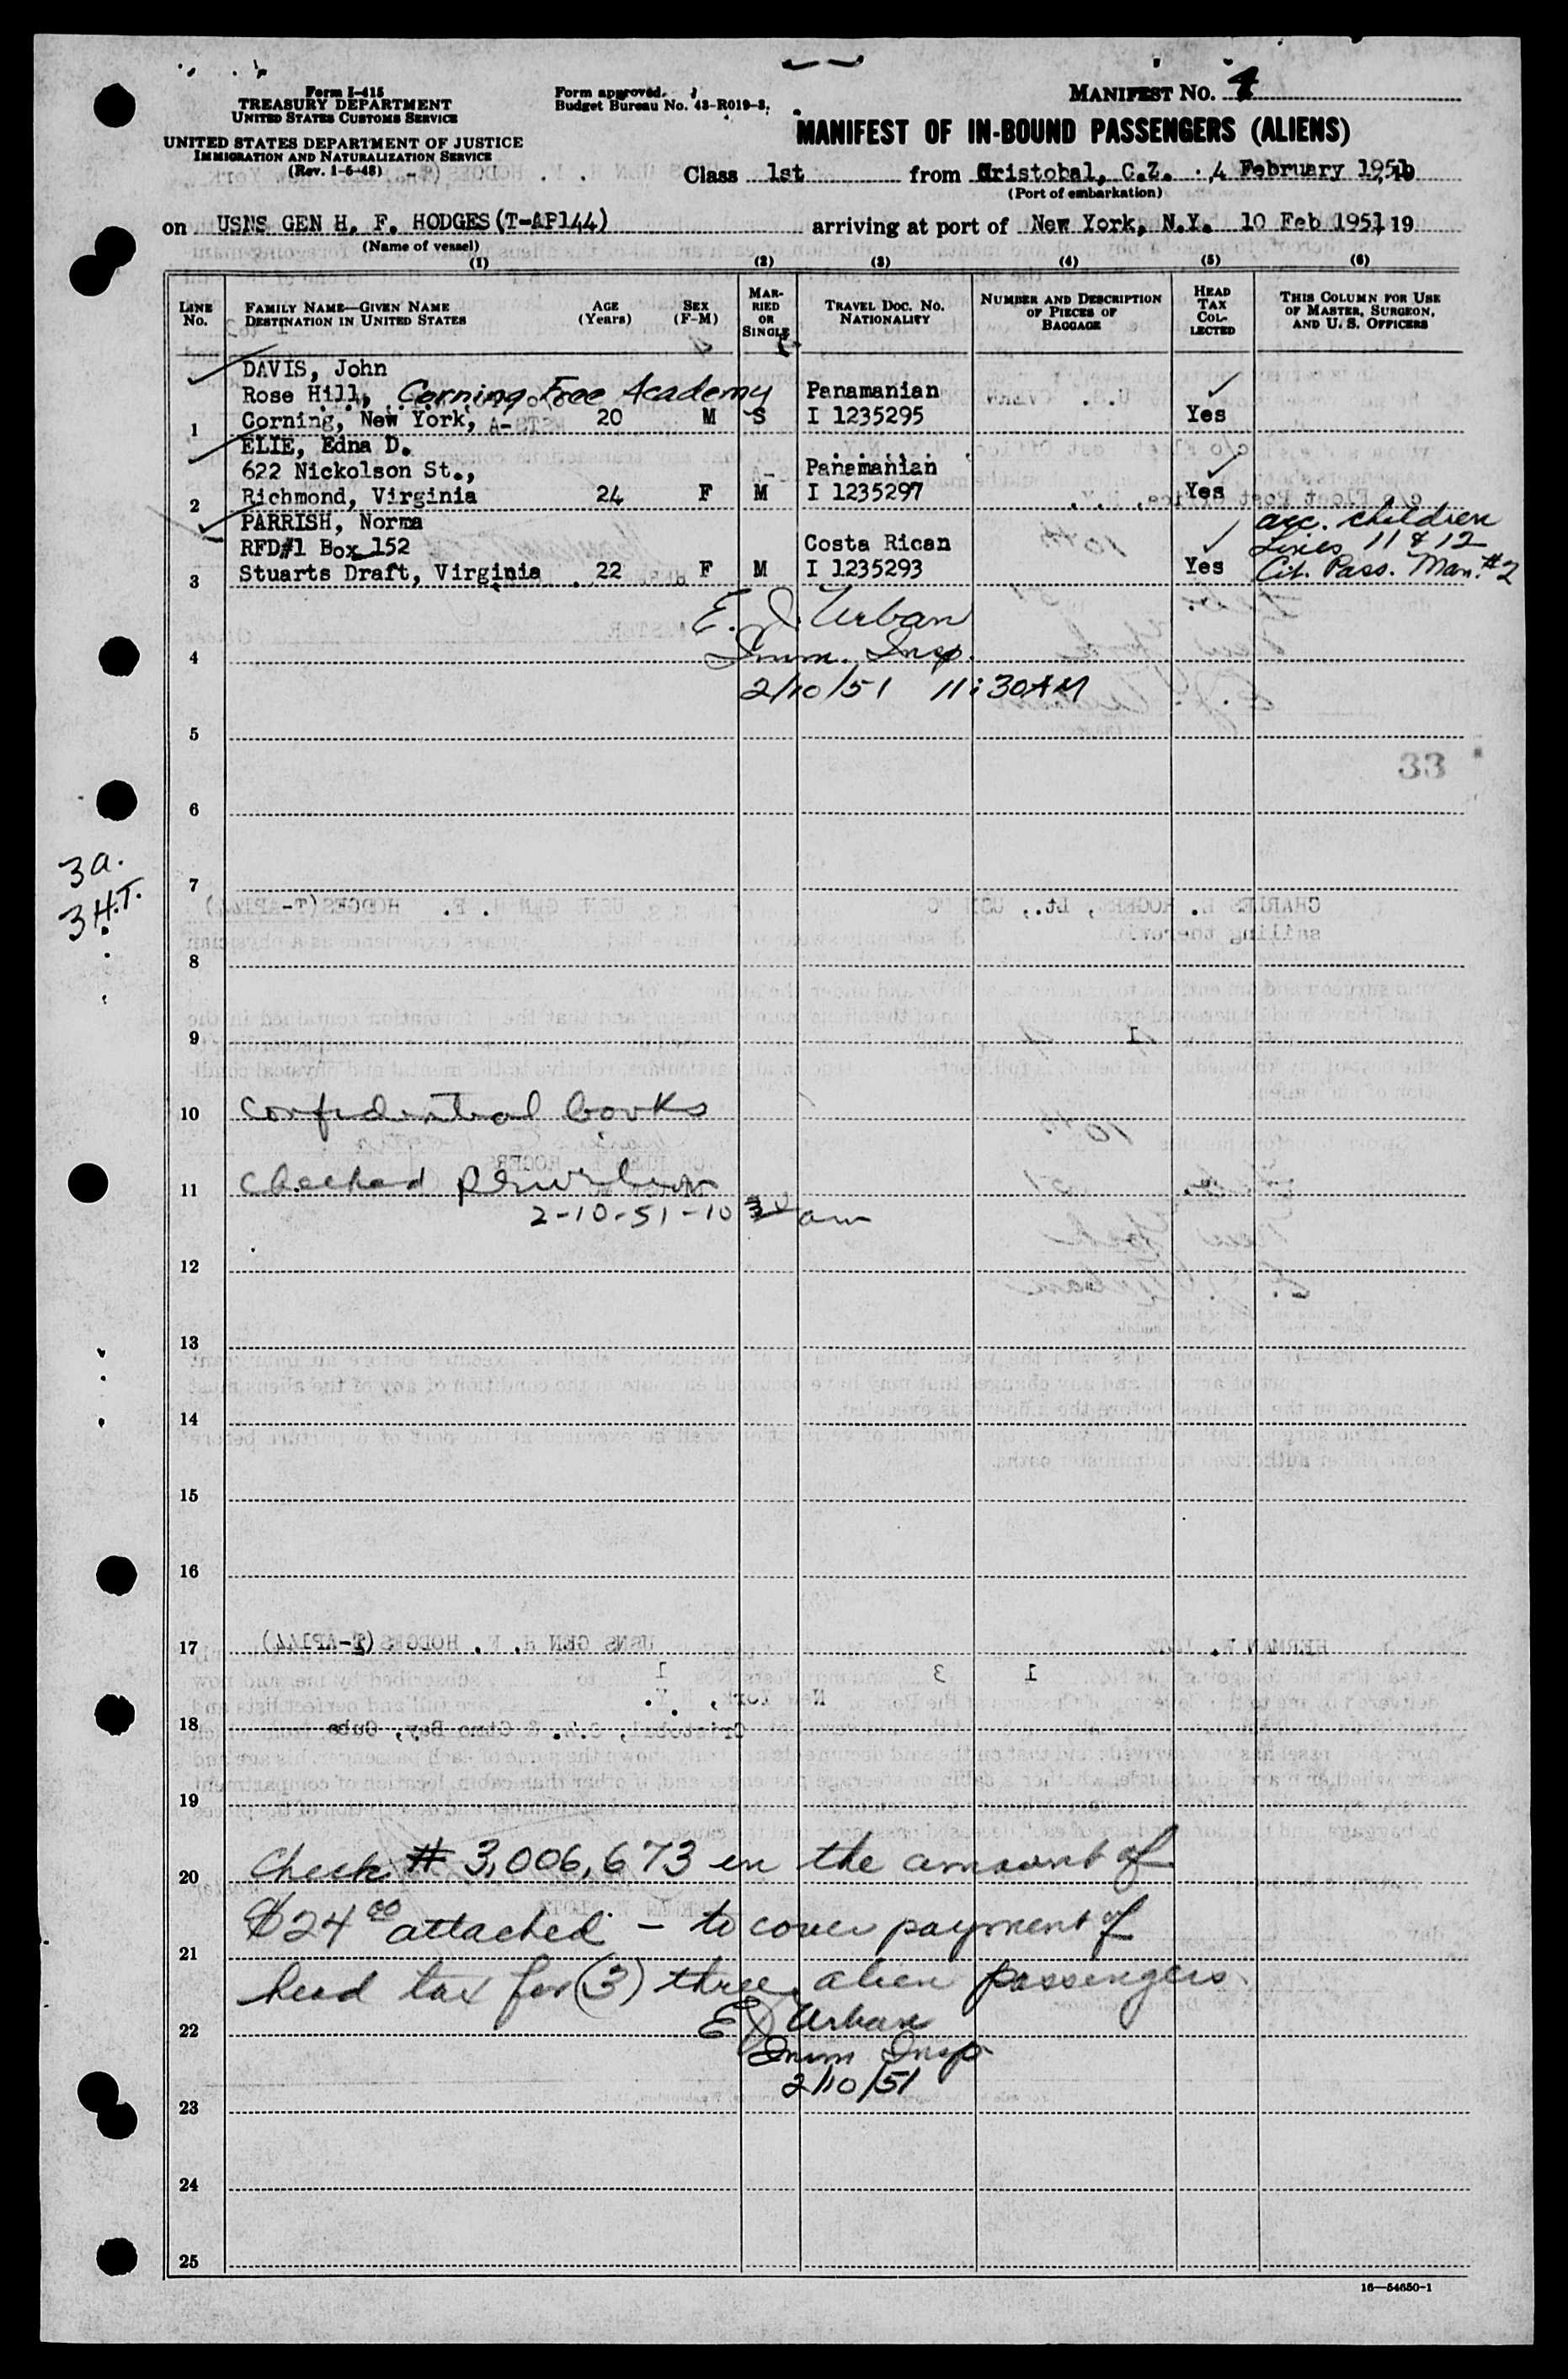 Form I-415
TREASURY DEPARTMENT
UNITED STATES CUSTOMS SERVICE
UNITED STATES DEPARTMENT OF JUSTICE
IMMIGRATION AND NATURALIZATION SERVICE
(Rev. 1-6-48)
Form approved.
Budget Bureau No. 43-R019-3.
MANIFEST NO. 4
MANIFEST OF IN-BOUND PASSENGERS (ALIENS)
Class 1st from Cristobal, C.Z. 4 February 1951 19
(Port of embarkation)
on USNS GEN H. F. HODGES(T-AP144) arriving at port of New York, N.Y. 10 Feb 1951 19
(Name of vessel)
(1) (2) (3) (4) (5) (6)
LINE No. FAMILY NAME—GIVEN NAME DESTINATION IN UNITED STATES AGE (Years) SEX (F-M) MARRIED OR SINGLE TRAVEL DOC. NO. NATIONALITY NUMBER AND DESCRIPTION OF PIECES OF BAGGAGE HEAD TAX COLLECTED THIS COLUMN FOR USE OF MASTER, SURGEON, AND U. S. OFFICERS
DAVIS, John
Rose Hill, Corning Free Academy Panamanian
1 Corning, New York, A- 20 M S I 1235295 Yes
ELIE, Edna D.
622 Nickolson St., Panamanian
2 Richmond, Virginia 24 F M I 1235297 Yes
PARRISH, Norma acc. children
RFD#1 Box 152 Costa Rican Lines 11 & 12
3 Stuarts Draft, Virginia 22 F M I 1235293 Yes Cit. Pass. Man. #2
E. J. Urban
4 Imm. Insp.
2/10/51 11:30AM
5
33
6
3a.
7
3 H.T.
8
9
10 Confidential books
11 checked
2-10-51-10 30 am
12
13
14
15
16
17
18
19
20 Check # 3,006,673 in the amount of
21 $24 00 attached - to cover payment of
head tax for (3) three alien passengers
22 E J Urban
Imm Insp
2/10/51
23
24
25
16—54650-1